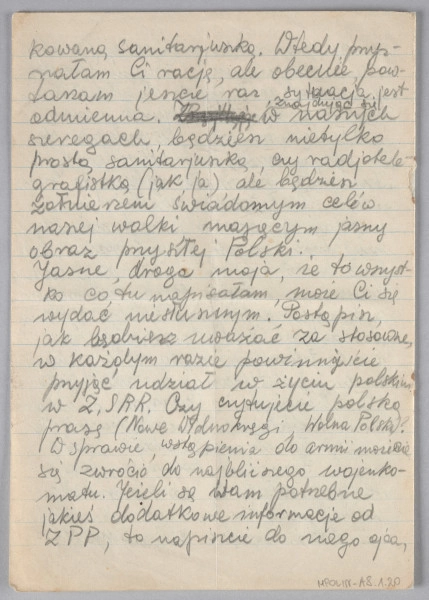 kowaną sanitarjuszką. Wtedy przy-
znałam Ci rację, ale obecnie, pow-
tarzam jeszcze raz sytuacja jest
odmienna. znajdując się w naszych
szeregach, będziesz nietylko
prostą sanitarjuszką, czy radjotele-
grafistką (jak ja) ale będziesz
żołnierzem świadomym celów
naszej walki mającym jasny
obraz przyszłej Polski.
Jasne, droga moja, że to wszyst-
ko co tu napisałam, może Ci się
wydać niesłusznym. Postąpisz,
jak będziesz uważać za stosowne,
w każdym razie powinnyście
przyjąć udział w życiu polskim
w Z.S.R.R. Czy czytujecie polską
prasę (Nowe Widnokręgi, Wolna Polska)?
W sprawie wstąpienia do armii możecie
się zwrócić do najbliższego wojenko-
matu. Jeżeli są Wam potrzebne
jakieś dodatkowe informacje od
ZPP, to napiszcie do mego ojca,
MPOLIN-A8.1.20